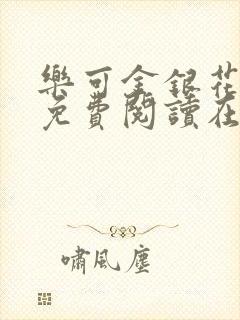 樂可金銀花
免費閱讀在
嘯風塵